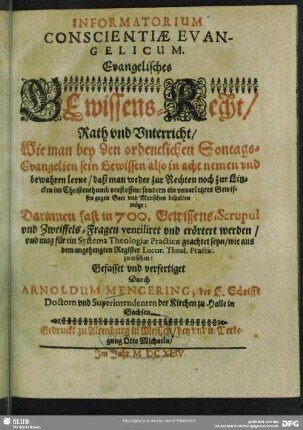 INFORMATORIUM
CONSCIENTIÆ EVAN-
GELICUM.
Evangelisches
GEwissens-Recht/
Rath vnd Vnterricht/
Wie man bey den ordentlichen Sontags-
Evangelien sein Gewissen also in acht nemen vnd
bewahren lerne / daß man weder zur Rechten noch zur Lin-
cken im Christenthumb verstosse: sondern ein unverletztes Gewis-
sen gegen Gott vnd Menschen behalten
möge:
Darinnen fast in 700. Gewissens-Scrupul
vnd Zweiffels-Fragen ventiliret vnd erörtert werden /
vnd mag für ein Systema Theologiæ Practicæ geachtet seyn/ wie aus
dem angehengten Register Locor. Theol. Practic.
zu ersehen:
Gefasset vnd verfertiget
Durch
ARNOLDUM MENGERING, der H. Schrifft
Doctorn vnd Superintendenten der Kirchen zu Halle in
Sachsen.
Gedruckt zu Altenburg in Meissen/ bey vnd in Verle-
gung Otto Michaeln/
Im Jahr M. DC XLIV.
SLUB